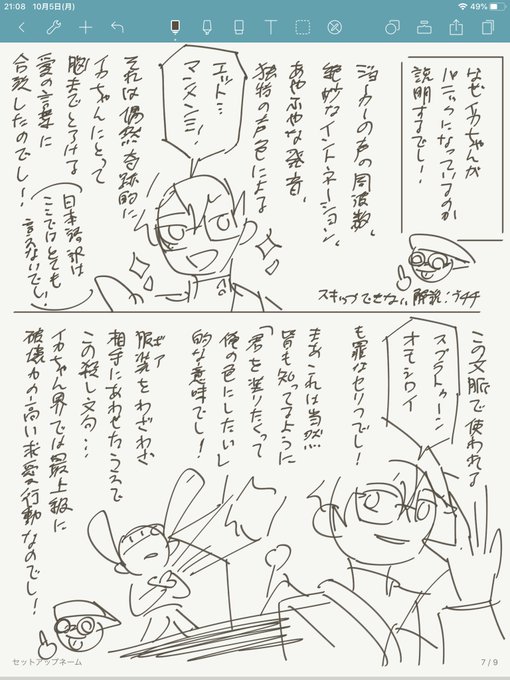 21:08 10月5日(月)
49%
なぜイカちゃんが
パニックになっているのか
説明するでし!
ジョーカーの声の周波数、
絶妙なイントネーション、
あやふやな発音、
独特の声色による
エット…
マンメンミ!
それは偶然奇跡的に
イカちゃんにとって
胸まで
愛の言葉に
合致したのでし!
日本語訳は
ここではとても
言えないでし!
スキップできない解説:ブキチ
この文脈で使われる
スプラトゥーン
オモシロイ
も罪なセリフでし!
まあこれは当然
皆も知ってるように
「君を塗りたくって
俺の色にしたいし」
的な意味でし!
ギア
服装をわざわざ
相手にあわせたうえで
この殺し文句…
イカちゃん界では最上級に
破壊力の高い求愛行動なのでし!
セットアップネーム
7 / 9